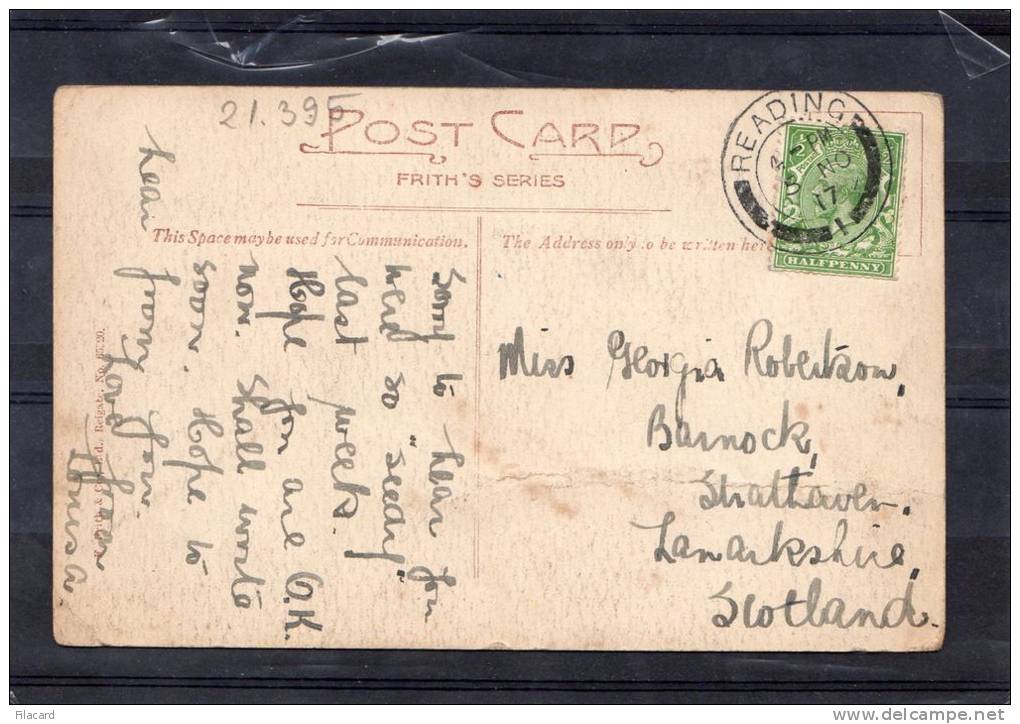 21.395
POST CARD
FRITH'S SERIES
READING
PM
NO
17
1
HALFPENNY
This Space may be used for Communication.
The Address only to be written here
Sorry to hear you
were so "seedy"
last week.
Hope you are O.K.
now. Shall write
soon. Hope to
hear
from you.
Miss Georgia Robertson,
Barnock,
Strathaven.
Lanarkshire,
Scotland.
Reigate. No.
Filacard
delcampe.net